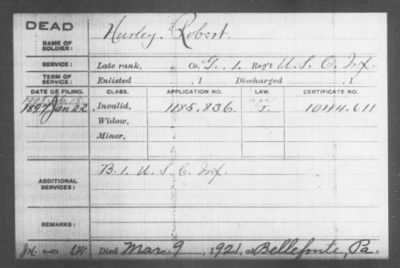 DEAD
NAME OF SOLDIER: Hurley Robert.
SERVICE: Late rank, " Co. G, 1 Reg't U.S.C. Inf.
TERM OF SERVICE: Enlisted , 1 Discharged , 1
DATE OF FILING. CLASS. APPLICATION NO. LAW. CERTIFICATE NO.
1897 Jan 22 Invalid, 1185.836. 1044.611
Widow,
Minor, "
ADDITIONAL SERVICES: B. 1. U.S.C. Inf.
REMARKS:
Died Mar 9, 1921, at Bellefonte, Pa.